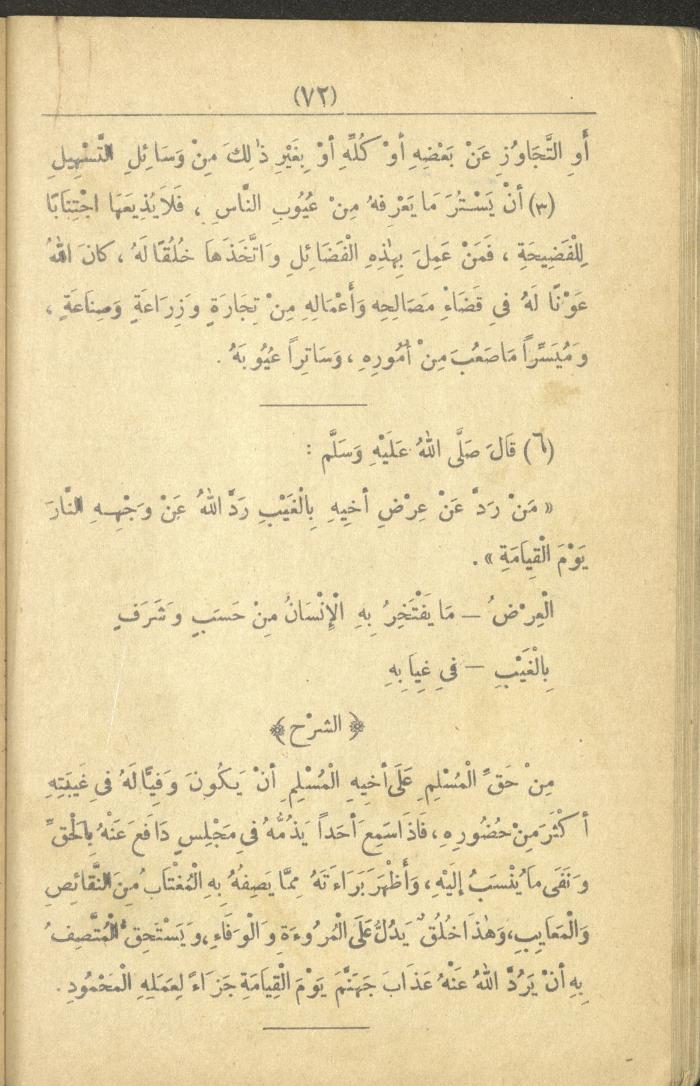 (٧٢)
أَوِ التَّجَاوُزِ عَنْ بَعْضِهِ أَوْ كُلِّهِ أَوْ بِغَيْرِ ذٰلِكَ مِنْ وَسَائِلِ التَّسْهِيلِ
(٣) أَنْ يَسْتُرَ مَا يَعْرِفهُ مِنْ عُيُوبِ النَّاسِ ، فَلَا يُذِيعَهَا اجْتِنَابًا
لِلْفَضِيحَةِ ، فَمَنْ عَمِلَ بِهٰذِهِ الْفَضَائِلِ وَاتَّخَذَهَا خُلُقًا لَهُ ، كَانَ اللهُ
عَوْنًا لَهُ فِي قَضَاءِ مَصَالِحِهِ وَأَعْمَالِهِ مِنْ تِجَارَةٍ وَزِرَاعَةٍ وَصِنَاعَةٍ ،
وَمُيَسِّراً مَا صَعُبَ مِنْ أُمُورِهِ ، وَسَاتِراً عُيُوبَهُ .
(٦) قَالَ صَلَّى اللهُ عَلَيْهِ وَسَلَّم :
« مَنْ رَدَّ عَنْ عِرْضِ أَخِيهِ بِالْغَيْبِ رَدَّ اللهُ عَنْ وَجْهِهِ النَّارَ
يَوْمَ الْقِيَامَةِ » .
الْعِرْضُ — مَا يَفْتَخِرُ بِهِ الْإِنْسَانُ مِنْ حَسَبٍ وَشَرَفٍ
بِالْغَيْبِ — فِي غِيَابِهِ
﴿ الشرْح ﴾
مِنْ حَقِّ الْمُسْلِمِ عَلَى أَخِيهِ الْمُسْلِمِ أَنْ يَكُونَ وَفِيًّا لَهُ فِي غَيْبَتِهِ
أَكْثَرَ مِنْ حُضُورِهِ ، فَإِذَا سَمِعَ أَحَداً يَذُمُّهُ فِي مَجْلِسٍ دَافَعَ عَنْهُ بِالْحَقِّ
وَنَفَى مَا يُنْسَبُ إِلَيْهِ ، وَأَظْهَرَ بَرَاءَتَهُ مِمَّا يَصِفُهُ بِهِ الْمُغْتَابُ مِنَ النَّقَائِصِ
وَالْمَعَايِبِ ، وَهٰذَا خُلُقٌ يَدُلُّ عَلَى الْمُرُوءَةِ وَالْوَفَاءِ ، وَيَسْتَحِقُّ الْمُتَّصِفُ
بِهِ أَنْ يَرُدَّ اللهُ عَنْهُ عَذَابَ جَهَنَّمَ يَوْمَ الْقِيَامَةِ جَزَاءً لِعَمَلِهِ الْمَحْمُودِ .